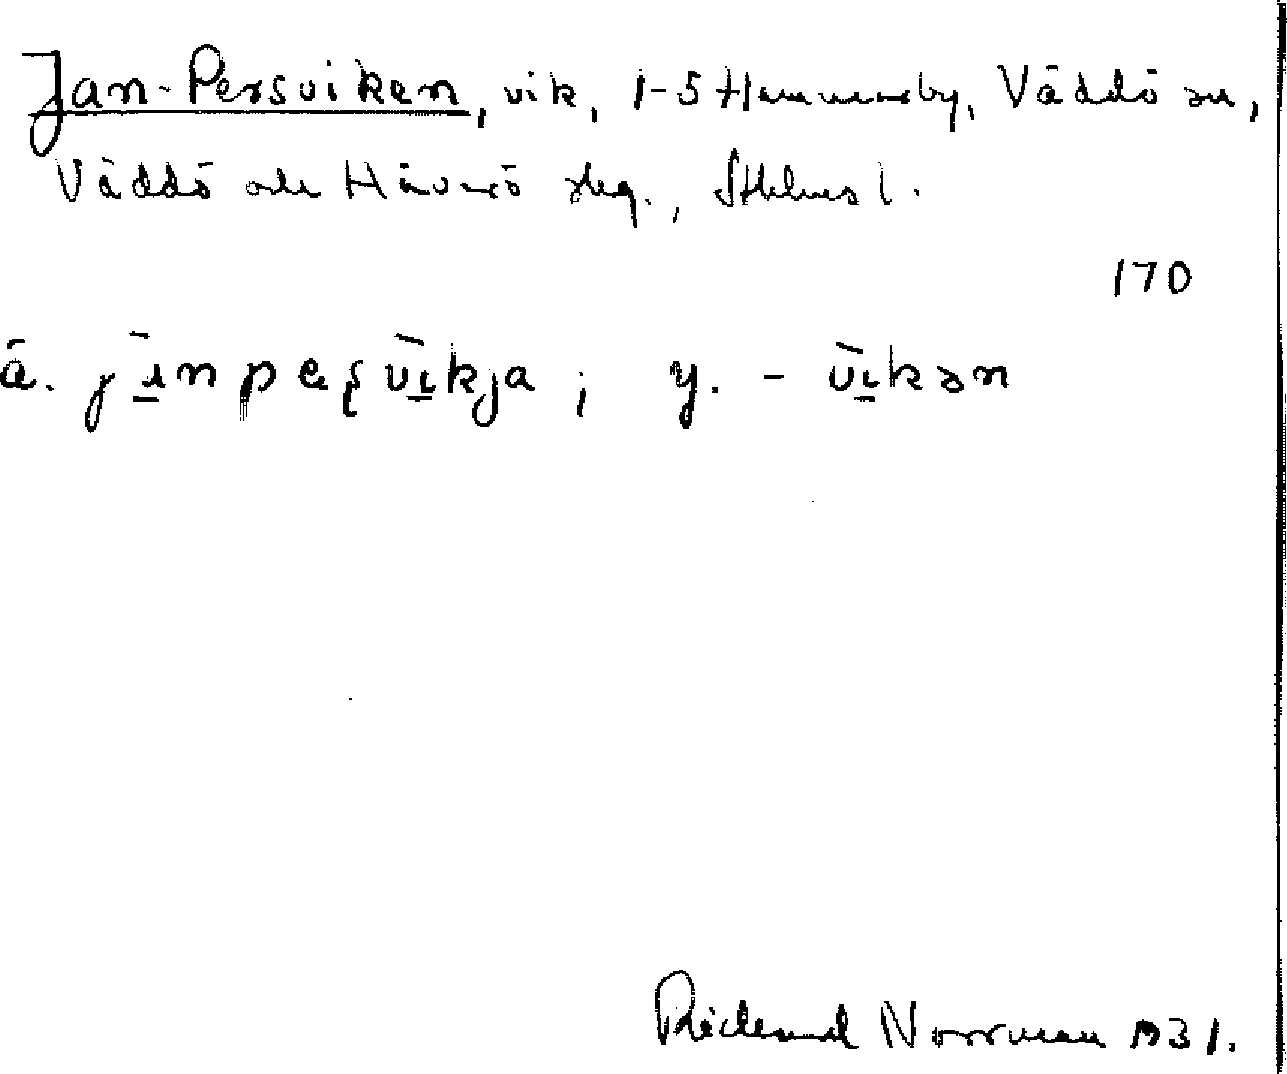 Jan-Persviken, vik, 1-5 Hammarby, Väddö sn,
Väddö och Häverö skg., Sthlms l.
170
ä. jɑ̀npeʂvìkja ; y. - vìkən
Rickard Norrman 1931.